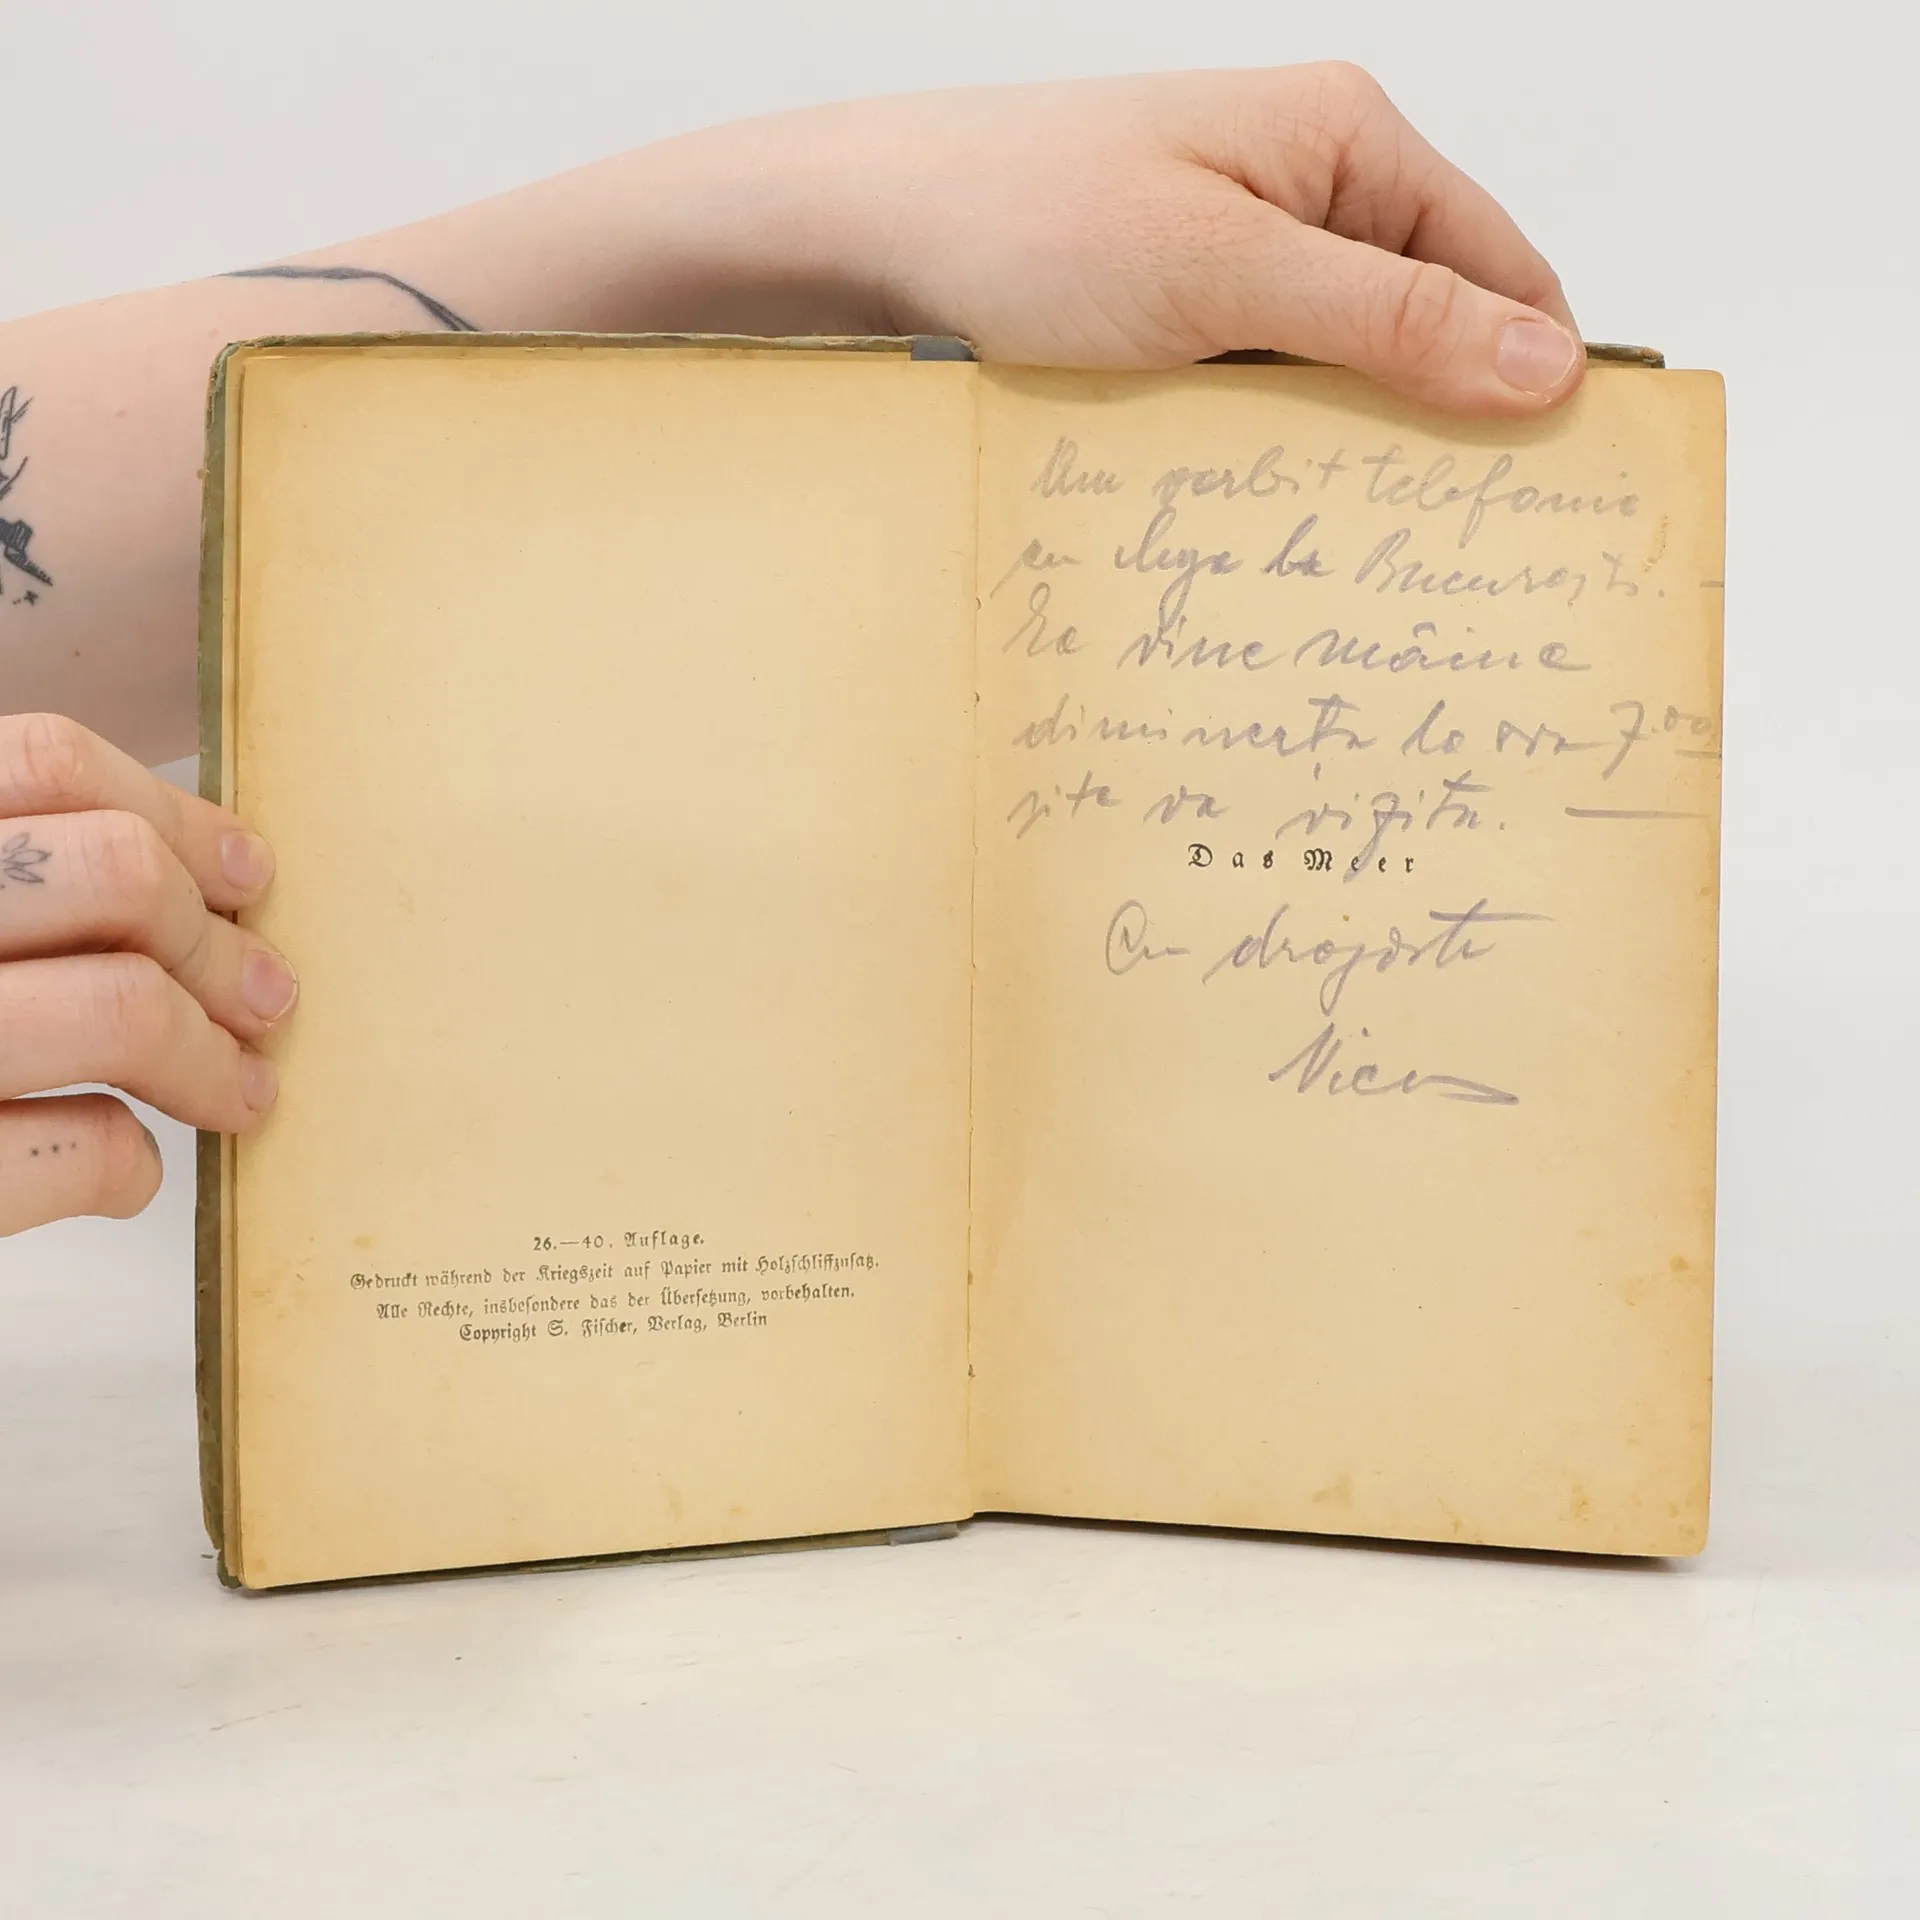 26.—40. Auflage.
Gedruckt während der Kriegszeit auf Papier mit Holzschliffzusatz.
Alle Rechte, insbesondere das der Übersetzung, vorbehalten.
Copyright S. Fischer, Verlag, Berlin
Am vorbit telefonic
cu la București. —
Ea vine mâine
dimineața la ora 7.00
și te va vizita. —
Das Meer
Cu dragoste